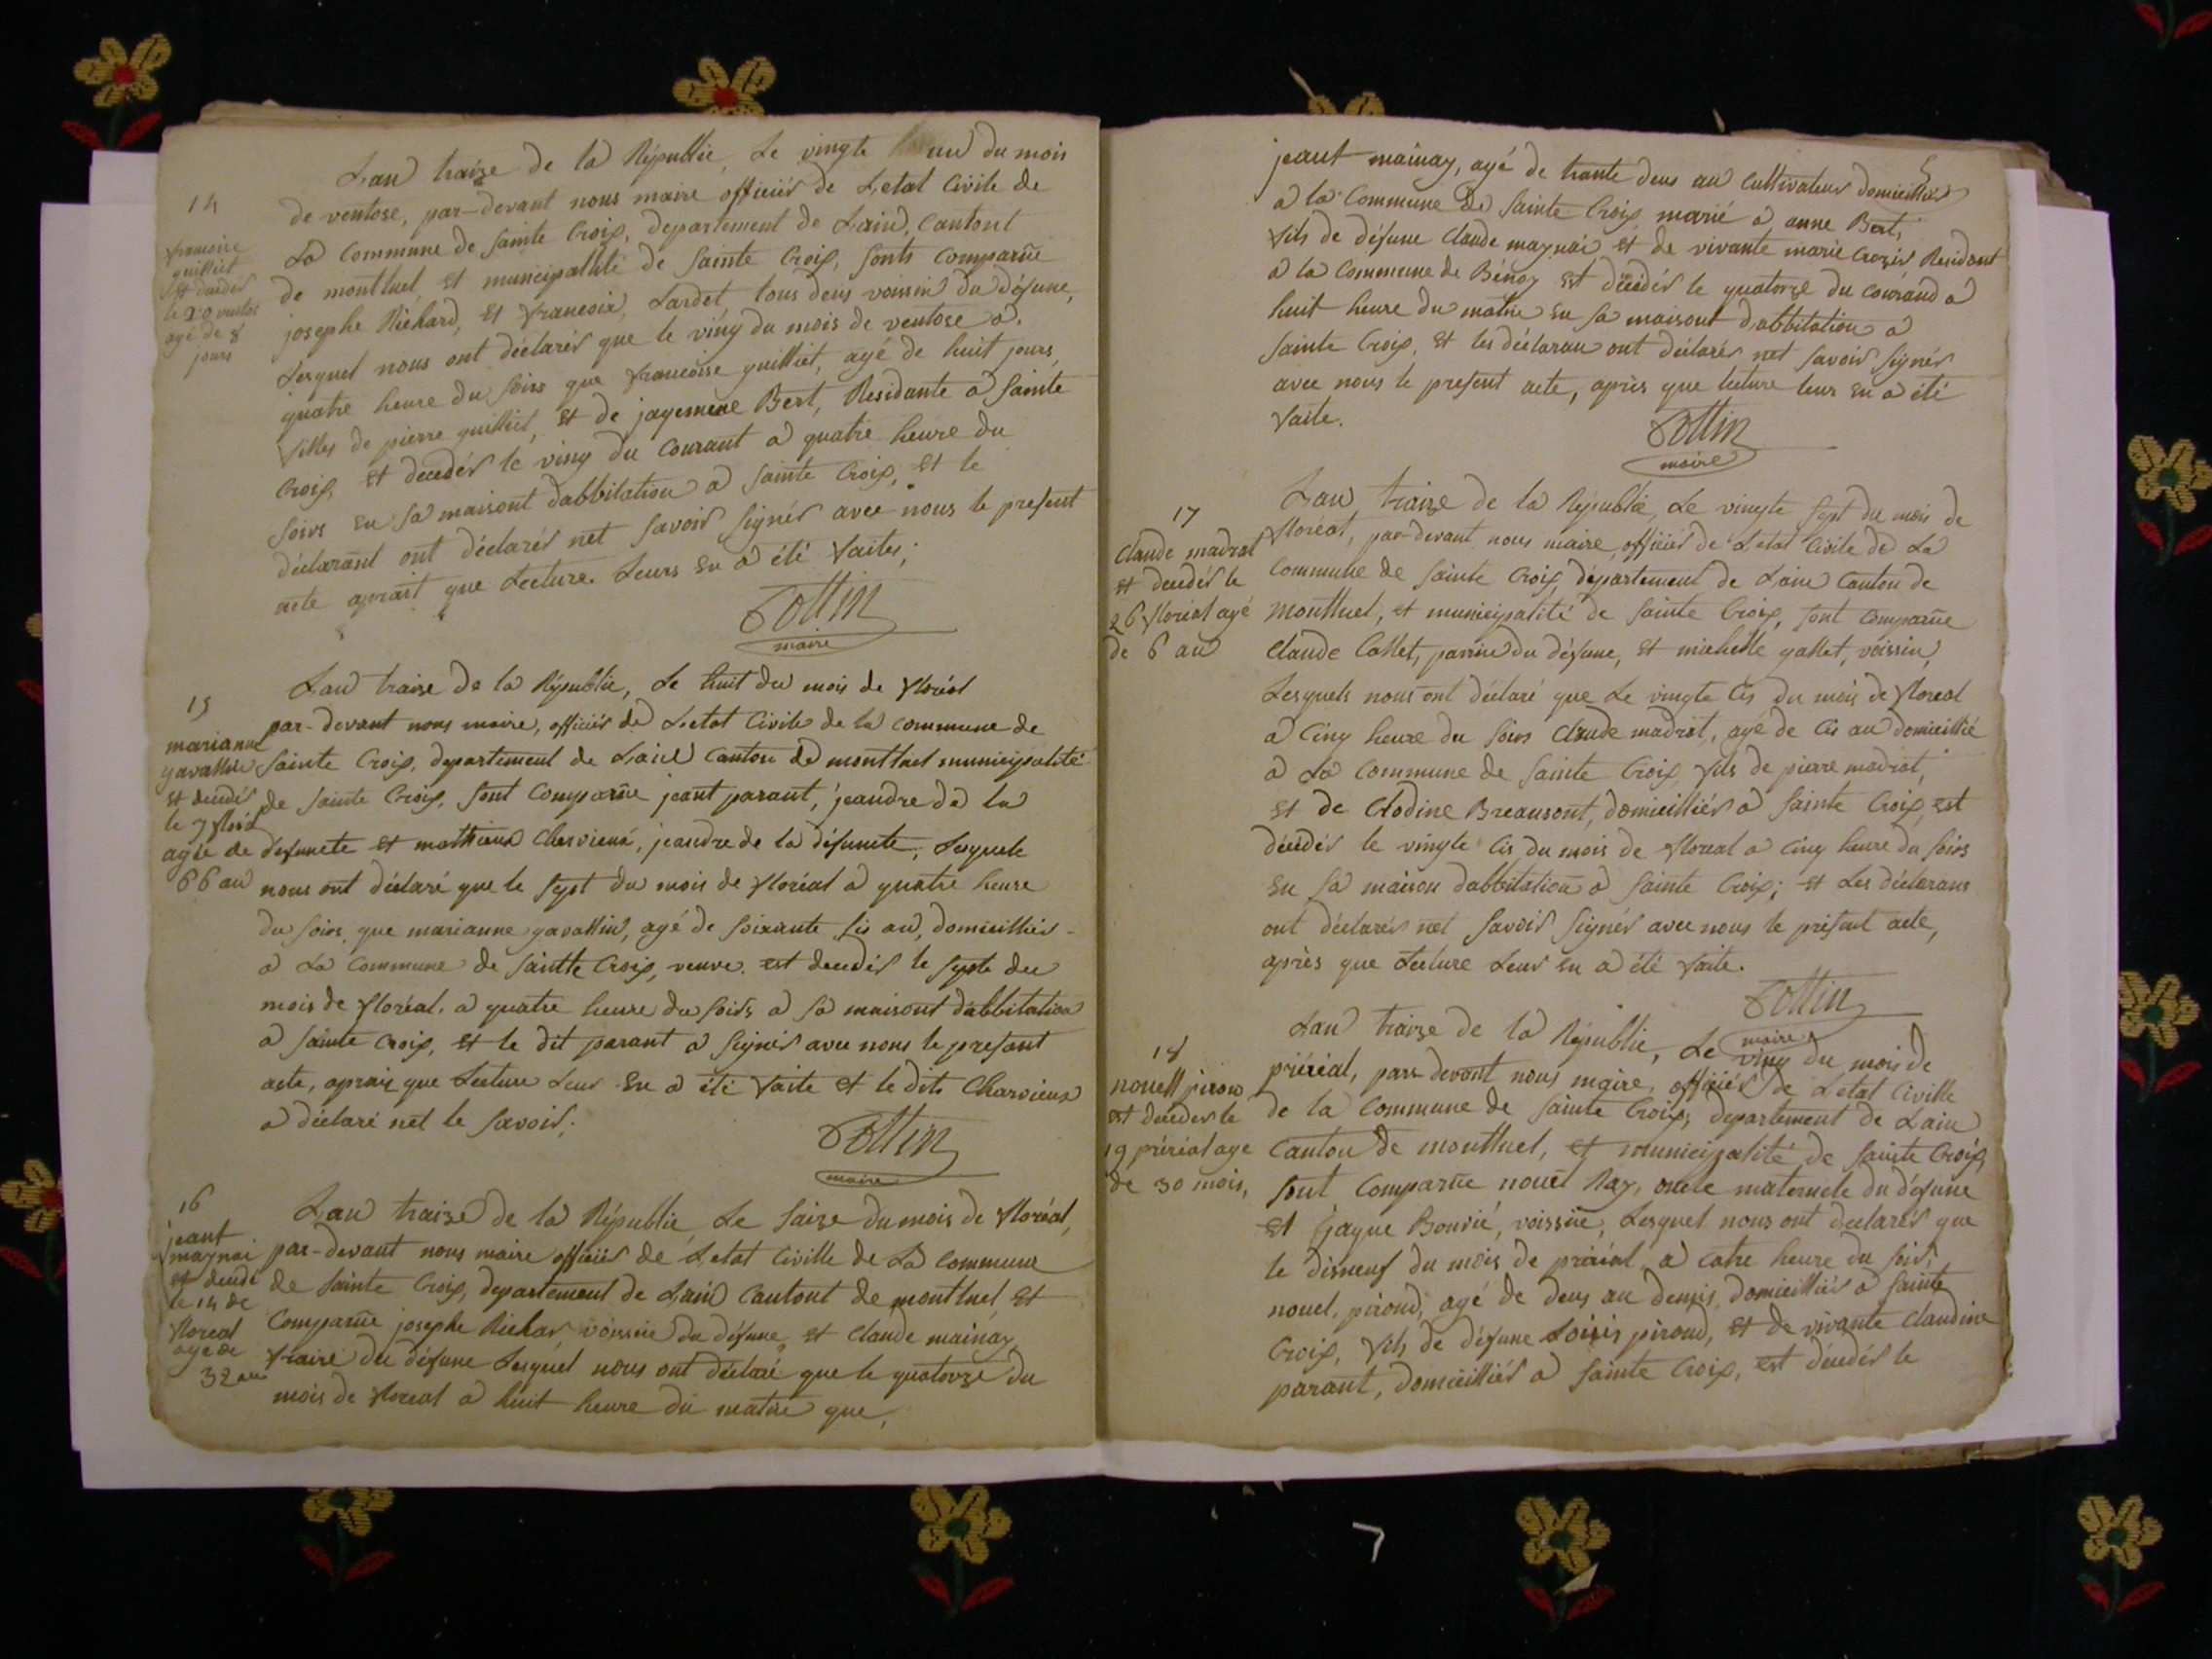 14
francoise
guilliet
Et décédér
le 20 ventos
agé de 8
jours
Lan traize de la Républic, Le vingte un du mois
de ventose, par-devant nous maire officiér de Letat Civile de
La Commune de Sainte Croix, departement de Lain, Cantont
de montluel, Et municipallité de Sainte Croix, sonts Comparue
josephe Richard, Et francoix Lardet, tous deus voissin du défune,
Lesquel nous ont déclarér que le ving du mois de ventose a
quatre heure du soirs que francoise guilliet, agé de huit jours,
filles de pierre guilliet, Et de jaqemene Bert, Residante a Sainte
Croix, Et décédér le ving du Courant a quatre heure du
soirs En sa maisont dabbitation a Sainte Croix, Et le
déclarant ont déclarér net savoir signér avec nous le present
acte aprait que Lecture Leurs En a été faites;
Tottin
maire
15
marianne
gavallin
Et décédér
le 7 floréal
agée de
66 an
Lan traise de la Républic, Le huit du mois de floréal
par-devant nous maire, officiér de Letat Civile de la commune de
Sainte Croix, departement de Lain Canton de montluel municipalité
de Sainte Croix, sont Comparue jeant parant, jeandre de la
defuncte Et mathieux Chervieux, jeandre de la défuncte, Lesquele
nous ont déclaré que le sept du mois de floréal a quatre heure
du soirs, que marianne gavallin, agé de soixante sis an, domicilliér
a La Commune de saintte Croix, veuve. est décédér le septe du
mois de floréal, a quatre heure du soirs a sa maisont dabbitation
a Sainte Croix, Et le dit parant a signér avec nous le presant
acte, apraiz que Lecture Leur En a été faite et le dits Charvieux
a déclaré net le savoir;
Tottin
maire
16
jeant
maynai
est décédé
le 14 de
floreal
age de
32 an
Lan traize de la Républic, Le saize du mois de floréal,
par-devant nous maire officiér de Letat Civille de La Commune
de Sainte Croix, departement de Lain Cantont de montluel, Et
Comparue josephe Richar, voissin du défune, Et Claude mainay,
fraire du défune Lesquel nous ont déclaré que le quatorze du
mois de floreal a huit heure du matin que,
5
jeant mainay, agé de trante deus an Cultivateur domicillier
a la Commune de Sainte Croix marié a anne Bert,
fils de défune Claude maynai Et de vivante marie Crozir Residant
a la Commune de Bénoz Est décédér le quatorze du Courand a
huit heure du matin En sa maisont dabbitation a
Sainte Croix, Et les déclaran ont déclarér net savoir signér
avec nous le present acte, après que lecture leur En a été
faite.
Tottin
maire
17
Claude madrat
Et décédér le
26 floréal agé
de 6 an
Lan, traize de la Républic, Le vingte sept du mois de
floréal, par-devant nous maire, officiér de Letat Civile de La
Commune de Sainte Croix, département de Lain Canton de
Montluel, Et municipalité de Sainte Croix, sont Comparue
Claude Collet, parrin du défune, Et michelle gallet, voissin,
Lesquels nous ont déclaré que Le vingte Cis du mois de floreal
a Cinq heure du soirs Claude madrat, agé de Cis an domicillié
a La Commune de Sainte Croix fils de pierre madrat,
Et de Clodine Breausont, domicilliér a Sainte Croix, est
décédér le vingte Cis du mois de floreal a Cinq heure du soirs
En sa maison dabbitation a Sainte Croix; Et Les déclarans
ont déclarér net savoir signér avec nous le présent acte,
après que Lecture Leur En a été faite.
Tottin
maire
18
nouell pirou
est décéder le
19 prérial age
de 30 mois,
Lan traize de la Républic, Le ving du mois de
préréal, par devant nous maire, officiér de Letat Civille
de la Commune de Sainte Croix, departement de Lain
Canton de montluel, Et municipalité de Sainte Croix,
sont Comparue nouel Ray, oncle maternele du défune
Et Jaque Bouvié, voissin, Lesquel nous ont declarér que
le disneuf du mois de prérial a catre heure du soir,
nouel, piroud, agé de deus an demis, domicilliér a Sainte
Croix, fils de défune Loisis piroud, Et de vivante Claudine
parant, domicilliér a Sainte Croix, est décédér le